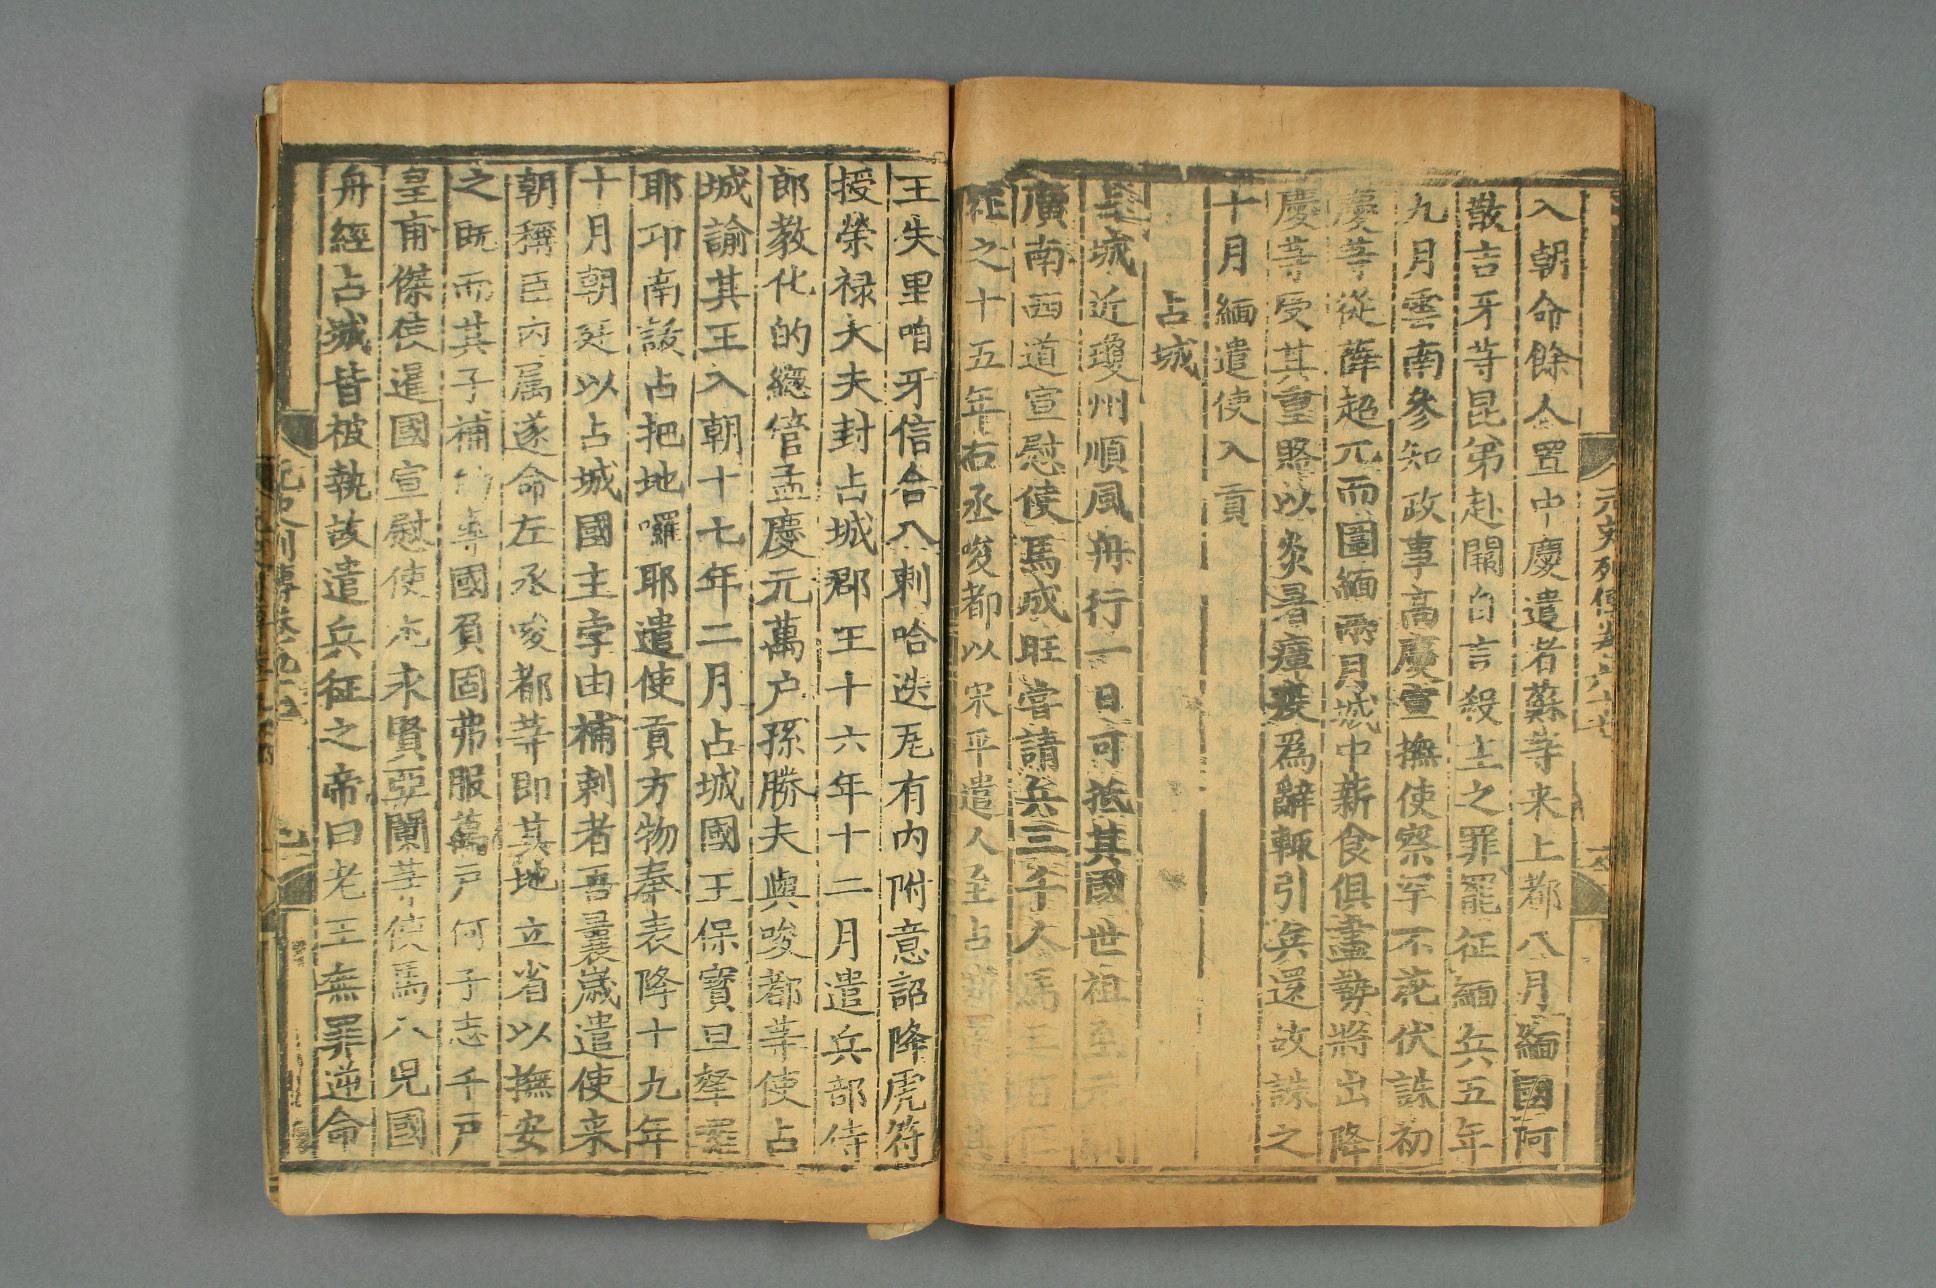 入朝命餘人置中慶遣者蘇等来上都八月緬國阿
散吉牙等昆弟赴闕自言殺主之罪罷征緬兵五年
九月雲南參知政事高慶宣撫使察罕不花伏誅初
慶等從薛超兀而圍緬兩月城中薪食俱盡勢將出降
慶等受其重賂以炎暑瘴疫爲辭輒引兵還故誅之
十月緬遣使入貢
占城
占城近瓊州順風舟行一日可抵其國世祖至元間
廣南西道宣慰使馬成旺嘗請兵三千人馬三百匹
征之十五年右丞唆都以宋平遣人至占城還言其
王失里咱牙信合八剌哈迭瓦有内附意詔降虎符
授榮禄大夫封占城郡王十六年十二月遣兵部侍
郎教化的緫管孟慶元萬户孫勝夫與唆都等使占
城諭其王入朝十七年二月占城國王保寳旦拏囉
耶邛南詼占把地囉耶遣使貢方物奉表降十九年
十月朝廷以占城國主孛由補剌者吾曩歲遣使来
朝稱臣内属遂命左丞唆都等即其地立省以撫安
之既而其子補的專國負固弗服萬户何子志千户
皇甫傑使暹國宣慰使尤永賢亞闌等使馬八兒國
舟經占城皆被執故遣兵征之帝曰老王無罪逆命